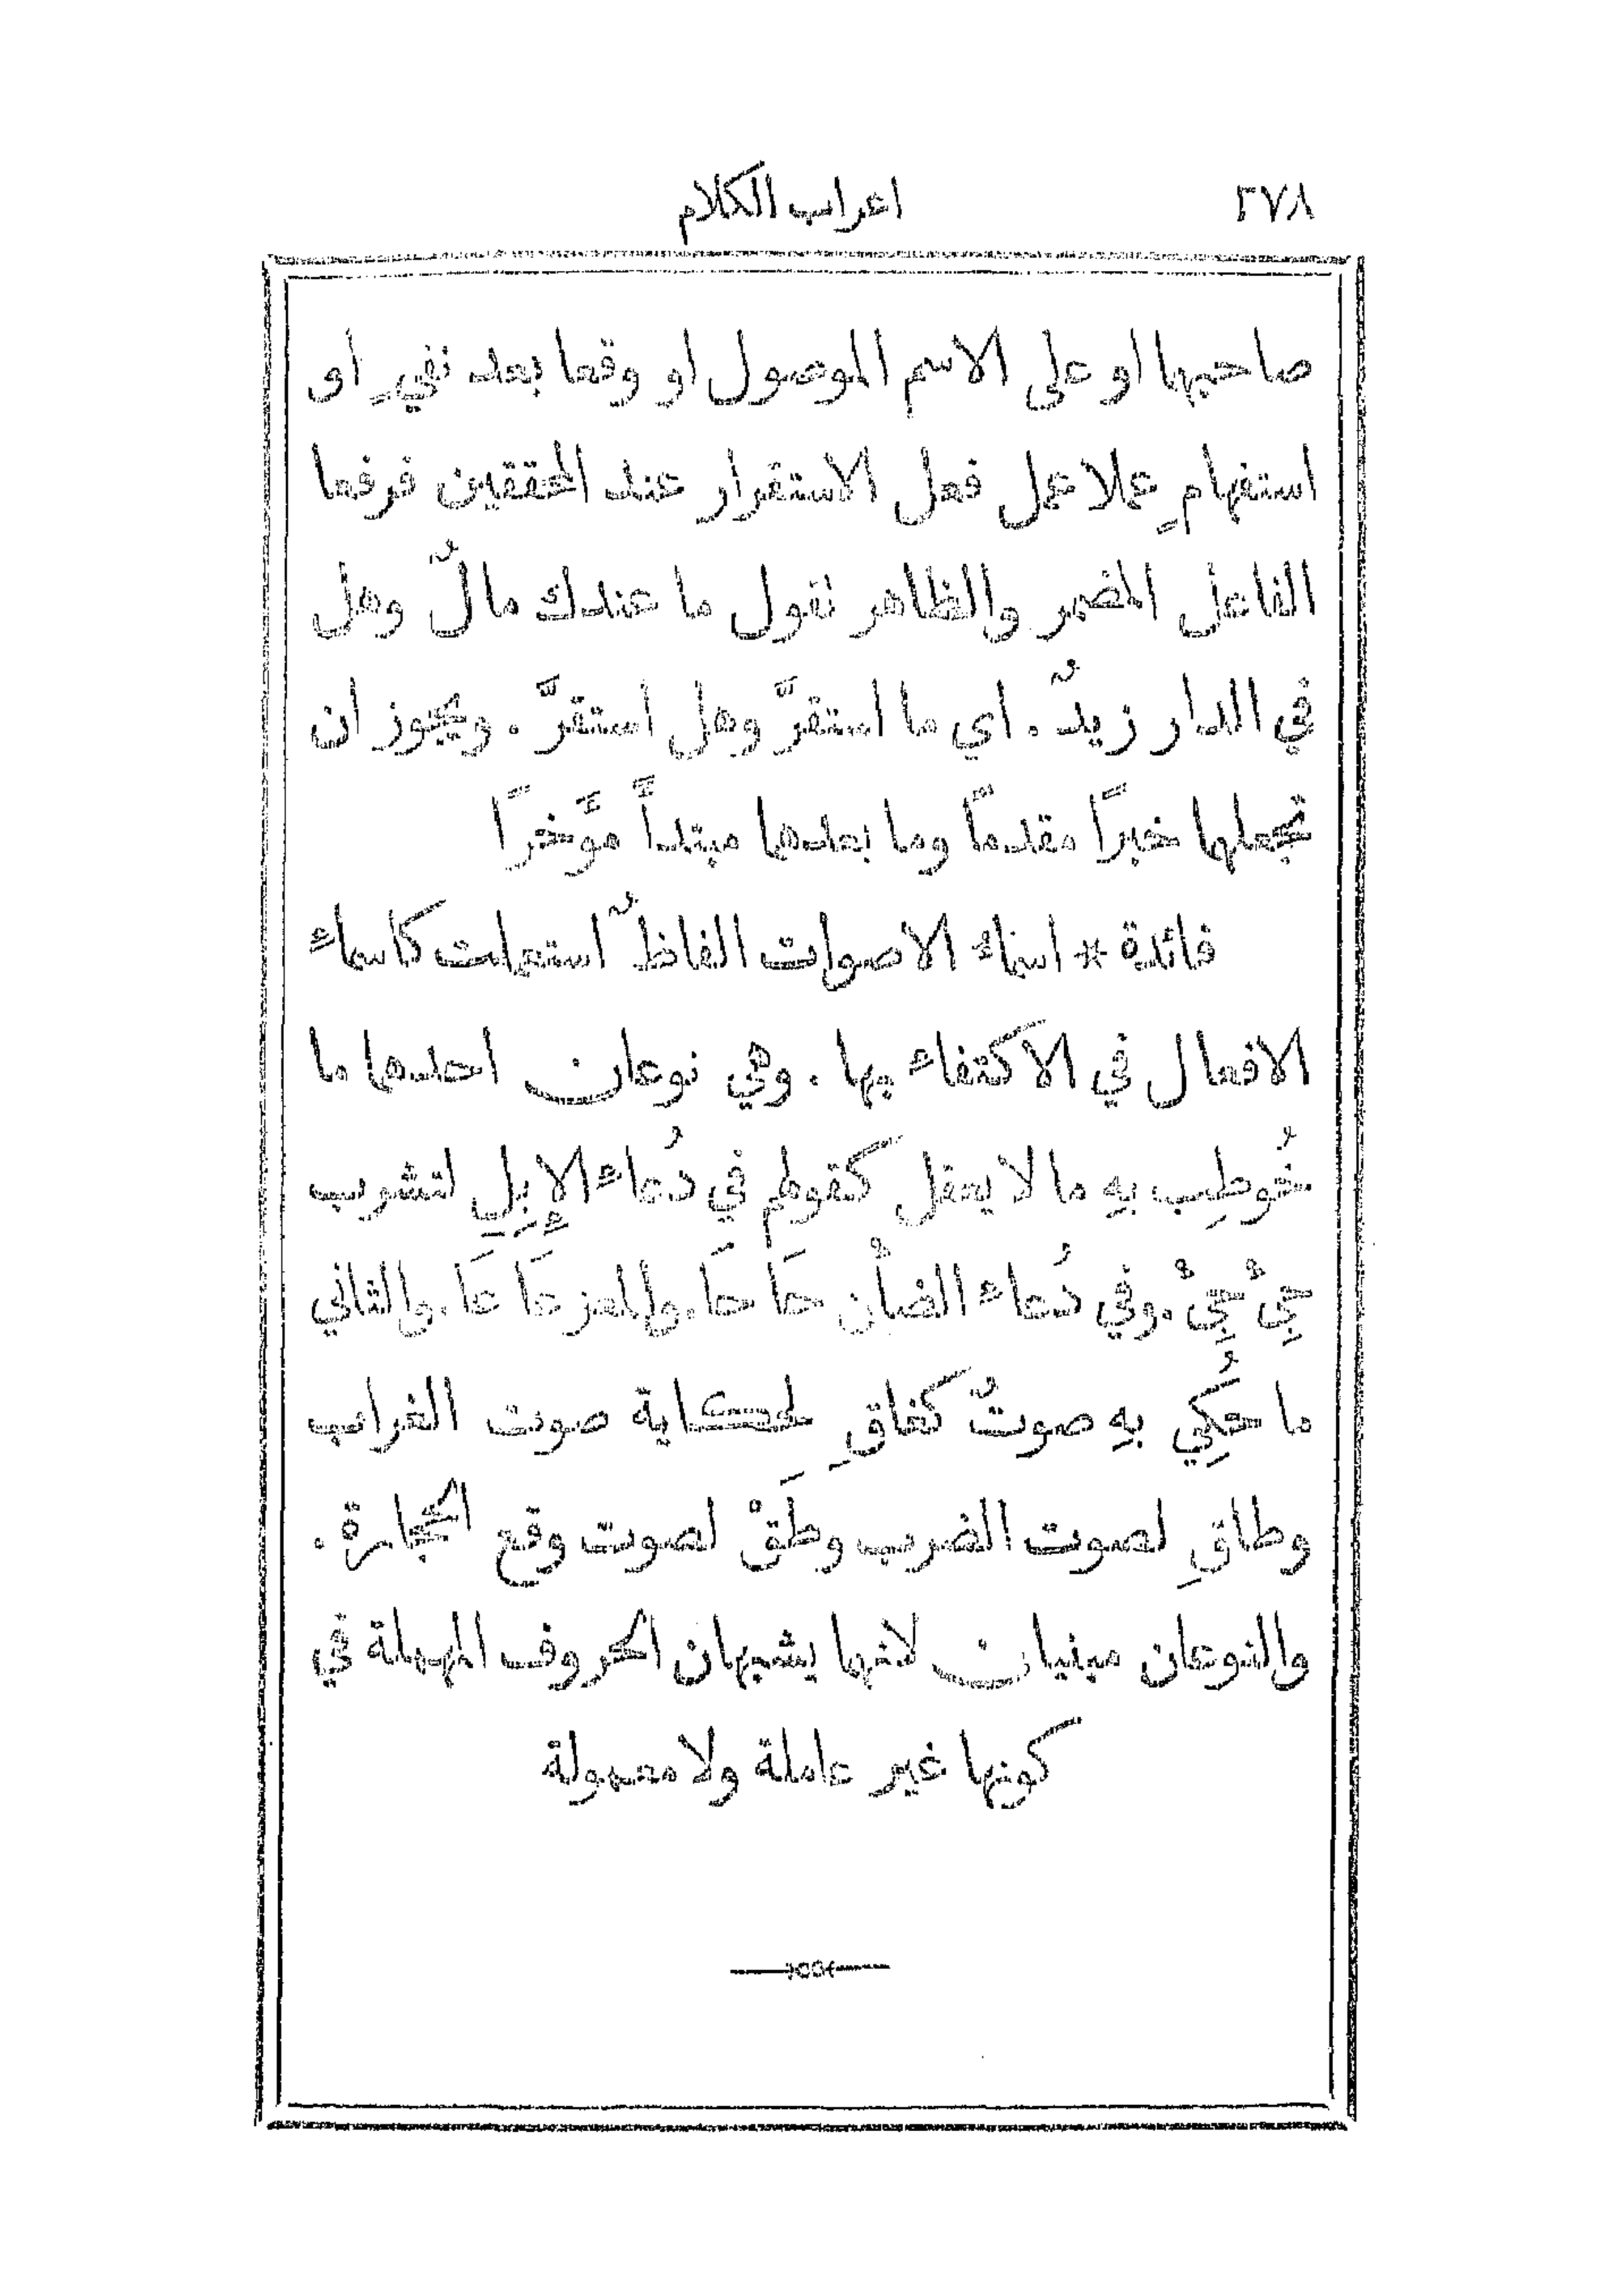 ٢٧٨ اعراب الكلام
صاحبها او على الاسم الموصول او وقعا بعد نفيٍ او
استفهامٍ عملا عمل فعل الاستقرار عند المحققين فرفعا
الفاعل المضمر والظاهر نقول ما عندك مالٌ وهل
في الدار زيدٌ. اي ما استقرَّ وهل استقرَّ. ويجوز ان
تجعلها خبرًا مقدمًا وما بعدها مبتدأً مؤَّخرًا
فائدة * اسماء الاصوات الفاظٌ استعملت كاسماء
الافعال في الاكتفاء بها. وهي نوعان احدها ما
خُوطِب بهِ ما لا يعقل كقولهم في دُعاء الإِبِلِ لتشرب
جِئْ جِئْ. وفي دُعاء الضأْن حَا حَا. وللمعز عَا عَا. والثاني
ما حُكِي بهِ صوتٌ كغاقِ لحكاية صوت الغراب
وطاقِ لصوت الضرب وطَقْ لصوت وقع الحجارة.
والنوعان مبنيان لانهما يشبهان الحروف المهملة في
كونها غير عاملة ولا معمولة